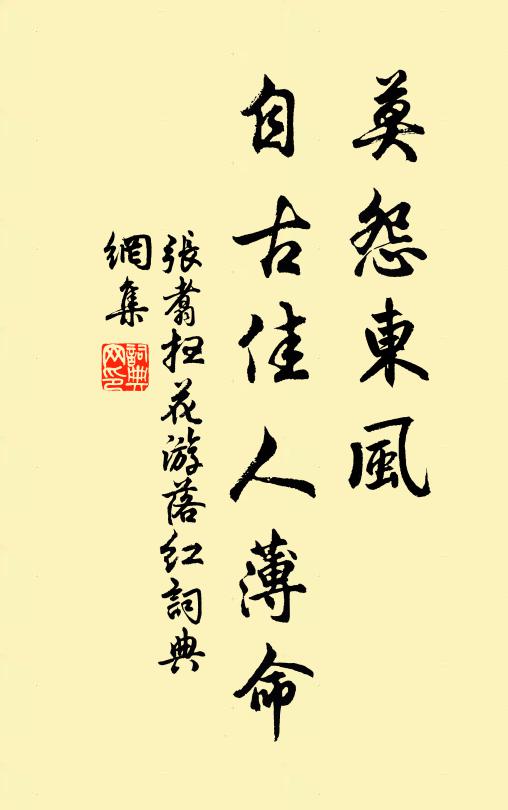 莫怨東風
自古佳人薄命
張翥扫花游落红詞典
網集
詞典
网印